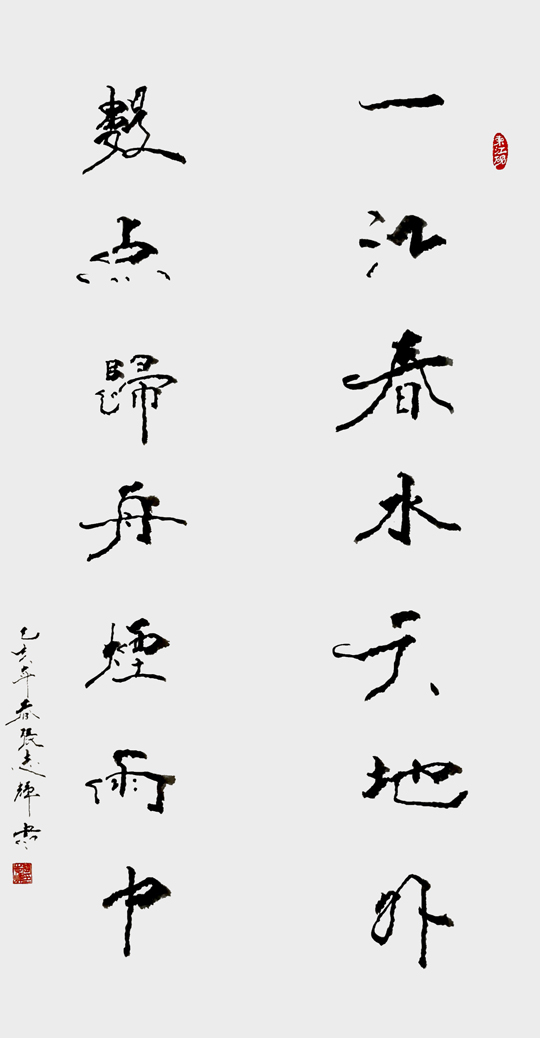 一江春水天地外
數点歸舟煙雨中
己亥年春張志輝書